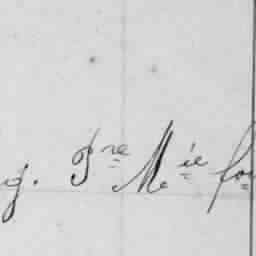 g. Pre Mie fo